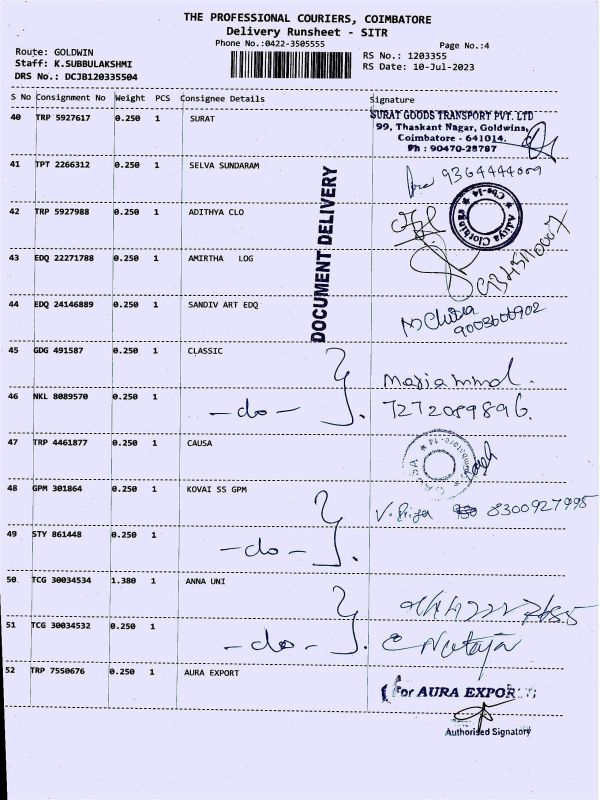 THE PROFESSIONAL COURIERS, COIMBATORE
Delivery Runsheet - SITR
Phone No.:0422-3505555
Page No.:4
Route: GOLDWIN
Staff: K.SUBBULAKSHMI
DRS No.: DCJB120335504
RS No.: 1203355
RS Date: 10-Jul-2023
S No Consignment No Weight PCS Consignee Details Signature
40 TRP 5927617 0.250 1 SURAT
SURAT GOODS TRANSPORT PVT. LTD
99, Thaskant Nagar, Goldwins,
Coimbatore - 641014.
Ph : 90470-28787
41 TPT 2266312 0.250 1 SELVA SUNDARAM
9364444009
DOCUMENT DELIVERY
42 TRP 5927988 0.250 1 ADITHYA CLO
Aditya Clothing
Cbe-14
43 EDQ 22271788 0.250 1 AMIRTHA LOG
44 EDQ 24146889 0.250 1 SANDIV ART EDQ
N Chitra
45 GDG 491587 0.250 1 CLASSIC
Mariammal.
46 NKL 8089570 0.250 1 -do-
7272089896.
47 TRP 4461877 0.250 1 CAUSA
CAUSA
48 GPM 301864 0.250 1 KOVAI SS GPM
V. Priya 8300927995
49 STY 861448 0.250 1 -do-
50 TCG 30034534 1.380 1 ANNA UNI
51 TCG 30034532 0.250 1 -do-
52 TRP 7550676 0.250 1 AURA EXPORT
For AURA EXPORT
Authorised Signatory